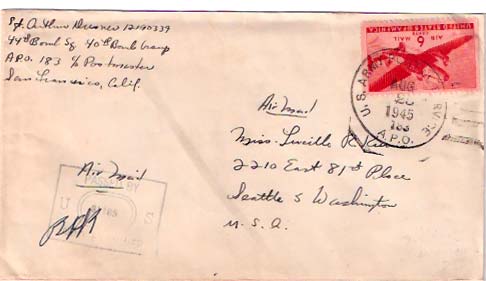 Arthur 12190339
44th Bomb Sq. 40th Bomb Group
A.P.O. 183 c/o Postmaster
San Francisco, Calif.
UNITED STATES OF AMERICA
AIR MAIL
6 CENTS
U.S. ARMY
AUG
1945
183
A.P.O.
Air Mail
Miss Lucille R.
2210 East 81st Place
Seattle 5 Washington
U.S.A.
Air Mail
PASSED BY
U S